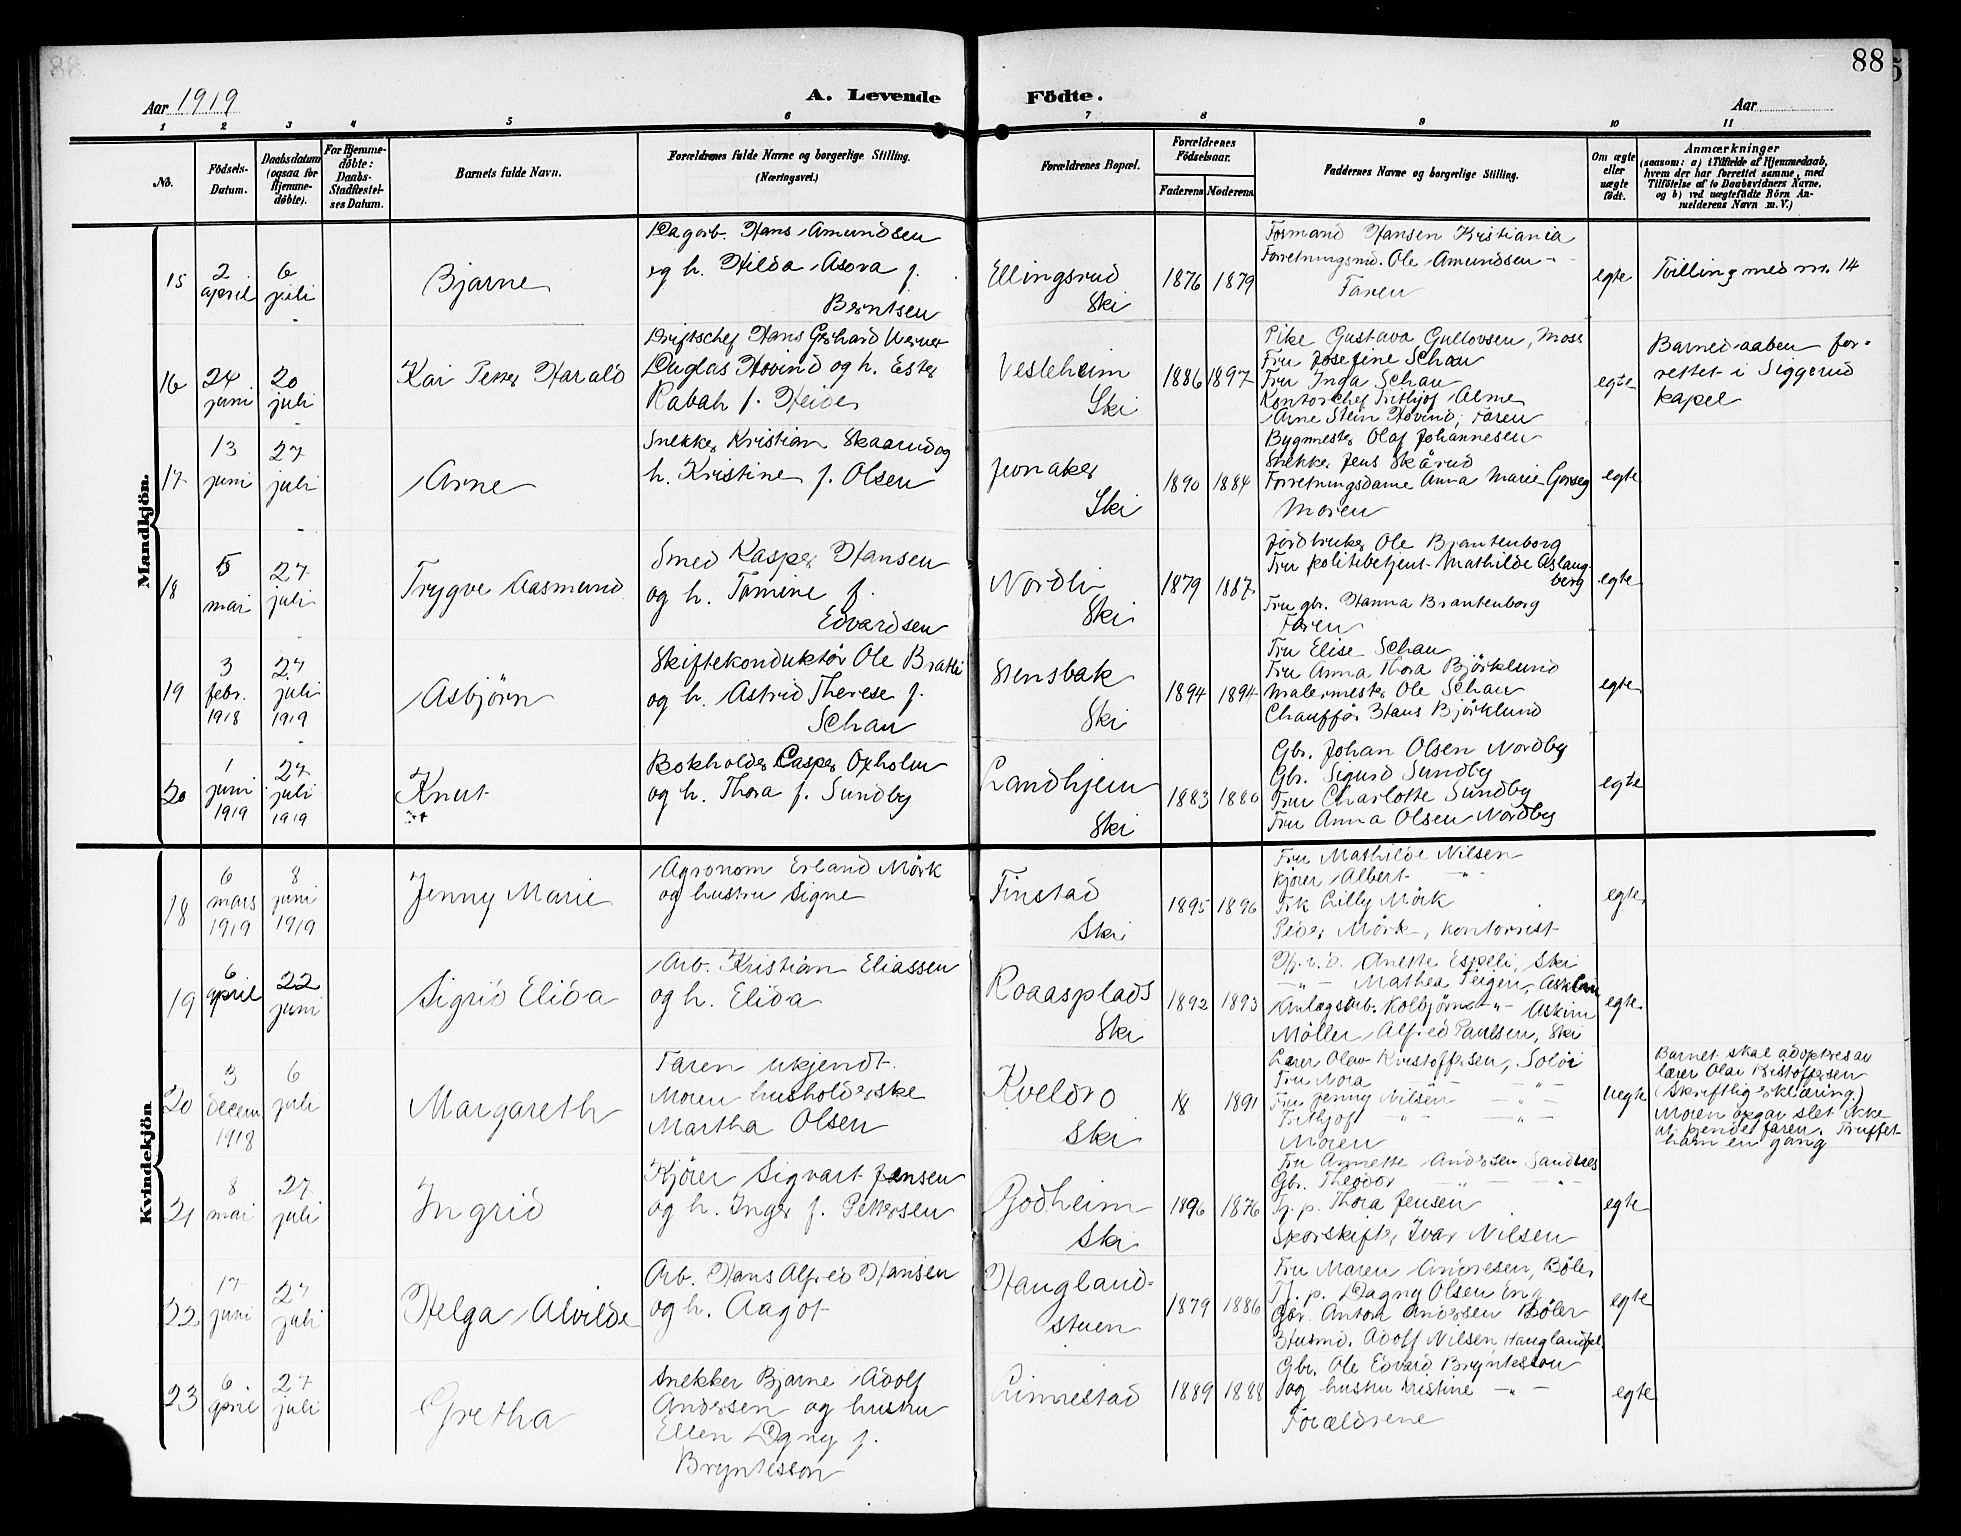 88
Aar 1919
A. Levende
Födte.
Aar
1 2 3 4 5 6 7 8 9 10 11
No.
Födsels-
Datum.
Daabsdatum
(ogsaa for
Hjemme-
döbte).
For Hjemme-
döbte:
Daabs-
Stadfæstel-
ses Datum.
Barnets fulde Navn.
Forældrenes fulde Navne og borgerlige Stilling.
(Næringsvei.)
Forældrenes Bopæl.
Forældrenes
Födselsaar.
Faderens.
Moderens.
Faddernes Navne og borgerlige Stilling.
Om ægte
eller
uægte
födt.
Anmærkninger
(saasom: a) i Tilfælde af Hjemmedaab,
hvem der har forrettet samme, med
Tilföielse af to Daabsvidners Navne,
og b) ved uægtefödte Börn An-
melderens Navn m. V.)
Mandkjön.
15
2
april
6
juli
Bjarne
Dagarb. Hans Amundsen
og h. Hilda Asora f.
Berntsen
Ellingsrud
Ski
1876
1879
Formand Hansen Kristiania
Forretningsmd. Ole Amundsen -"-
Faren
egte
Tvilling med nr. 14
16
24
juni
20
juli
Kai Peter Harald
Driftschef Hans Gerhard Werner
Duglas Hovind og h. Ester
Rabah f. Heider
Vesleheim
Ski
1886
1897
Pike Gustava Gullovsen, Moss
Fru Josefine Schau
Fru Inga Schau
Kontorchef Frithjof Alme
Arne Stein Hovind, Faren
egte
Barnedaaben for-
rettet i Siggerud
kapel
17
13
juni
27
juli
Arne
Snekker Kristian Skaarud og
h. Kristine f. Olsen
Jonaker
Ski
1890
1884
Bygmester Olaf Johannesen
Snekker Jens Skårud
Forretningsdame Anna Marie Gorseg
Moren
egte
18
5
mai
27
juli
Trygve Aasmund
Smed Kasper Hansen
og h. Tomine f.
Edvardsen
Nordli
Ski
1879
1887
Jordbruker Ole Brantenborg
Fru politibetjent Mathilde Aslang-
berg
Fru gbr. Hanna Brantenborg
Faren
egte
19
3
febr.
1918
27
juli
1919
Asbjörn
Skiftekonduktör Ole Bratli
og h. Astrid Therese f.
Schau
Stensbak
Ski
1894
1894
Fru Elise Schau
Fru Anna Thora Björklund
Malermester Ole Schau
Chaufför Hans Björklund
egte
20
1
juni
1919
27
juli
1919
Knut
Bokholder Casper Oxholm
og h. Thora f. Sundby
Landhjem
Ski
1883
1880
Gbr. Johan Olsen Nordby
Gbr. Sigurd Sundby
Fru Charlotte Sundby
Fru Anna Olsen Nordby
egte
Kvindekjön
18
6
mars
1919
8
juni
1919
Jenny Marie
Agronom Erland Mörk
og hustru Signe
Finstad
Ski
1895
1896
Fru Mathilde Nilsen
kjörer Albert -"-
Frk Lilly Mörk
Peder Mörk, kontorist
egte
19
6
april
22
juni
Sigrid Elida
Arb. Kristian Eliassen
og h. Elida
Roaasplads
Ski
1892
1893
Anette Espeli, Ski
-"- Mathea Teigen, Askim
Anlægsarb. Kolbjörn -"- Askim
Möller Alfred Paulsen, Ski
egte
20
3
decem
1918
6
juli
Margareth
Faren ukjendt.
Moren husholderske
Martha Olsen
Kveldro
Ski
18
1891
Lærer Olav Kristoffersen, Solör
Fru Nora -"- -"-
Fru Jenny Nilsen -"-
Frithjof -"- -"-
Moren
uegte
Barnet skal adopteres av
lærer Olav Kristoffersen
(Skriftlig erklæring.)
Moren opgav slet ikke
at kjende faren. Truffet
ham en gang
21
8
mai
27
juli
Ingrid
Kjörer Sigvart Jensen
og h. Inger f. Pettersen
Godheim
Ski
1896
1876
Fru Annette Andersen Sandnes
Gbr. Theodor -"- -"-
Tj. p. Thora Jensen
Sporskifter Ivar Nilsen
egte
22
17
juni
27
juli
Helga Alvilde
Arb. Hans Alfred Hansen
og h. Aagot
Haugland-
stuen
1879
1886
Fru Maren Andresen, Böler
Tj. p. Dagny Olsen Eng
Gbr. Anton Andersen Böler
Husmd. Adolf Nilsen, Hauglandpl.
egte
23
6
april
27
juli
Gretha
Snekker Bjarne Adolf
Andersen og hustru
Ellen Dagny f.
Bryntesson
Linnestad
1889
1888
Gbr. Ole Edvard Bryntesson
og hustru Kristine -"-
Forældrene
egte